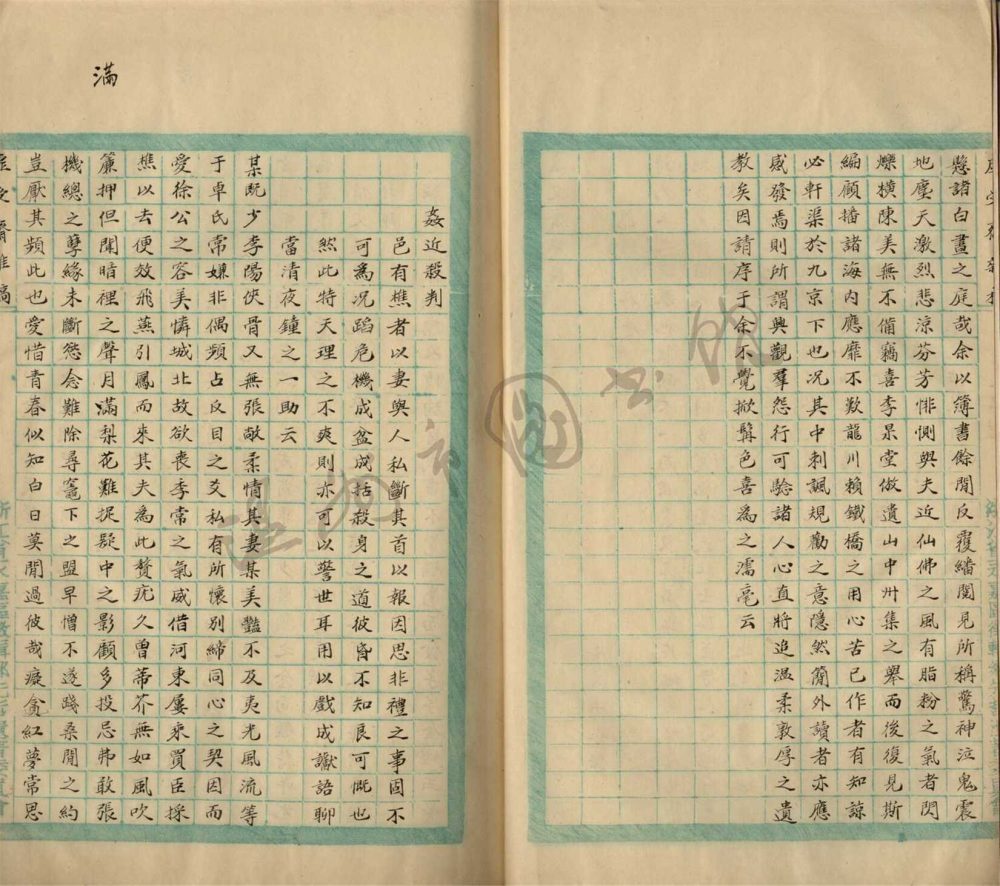 懸諸白晝之庭哉余以簿書餘閒反覆繙閱見所稱驚神泣鬼震
地塵天激烈悲涼芬芳悱惻與夫近仙佛之風有脂粉之氣者閃
爍橫陳美無不備竊喜李杲堂倣遺山中州集之舉而後復見斯
編顧播諸海內應靡不歎龍川賴鐵橋之用心苦已作者有知諒
必軒渠於九京下也况其中刺諷規勸之意隱然簡外讀者亦應
感發焉則所謂興觀羣怨行可驗諸人心直將追溫柔敦厚之遺
教矣因請序于余不覺掀髯色喜為之濡毫云
滿
姦近殺判
邑有樵者以妻與人私斷其首以報因思非禮之事固不
可為况蹈危機成盆成括殺身之道彼昏不知良可慨也
然此特天理之不爽則亦可以警世耳用以戲成讞語聊
當清夜鐘之一助云
某既少李陽俠骨又無張敞柔情其妻某美豔不及夷光風流等
于卓氏常嫌非偶頻占反目之爻私有所懷別締同心之契因而
愛徐公之容美憐城北故欲喪李常之氣威借河東屢來買臣採
樵以去便效飛燕引鳳而來其夫為此贅疣久曾蒂芥無如風吹
簾押但聞暗裡之聲月滿梨花難捉疑中之影顧多投忌弗敢張
機總之孽緣未斷慾念難除尋竈下之盟早憎不遂踐桑間之約
豈厭其頻此也愛惜青春似知白日莫閒過彼哉癡貪紅夢常思